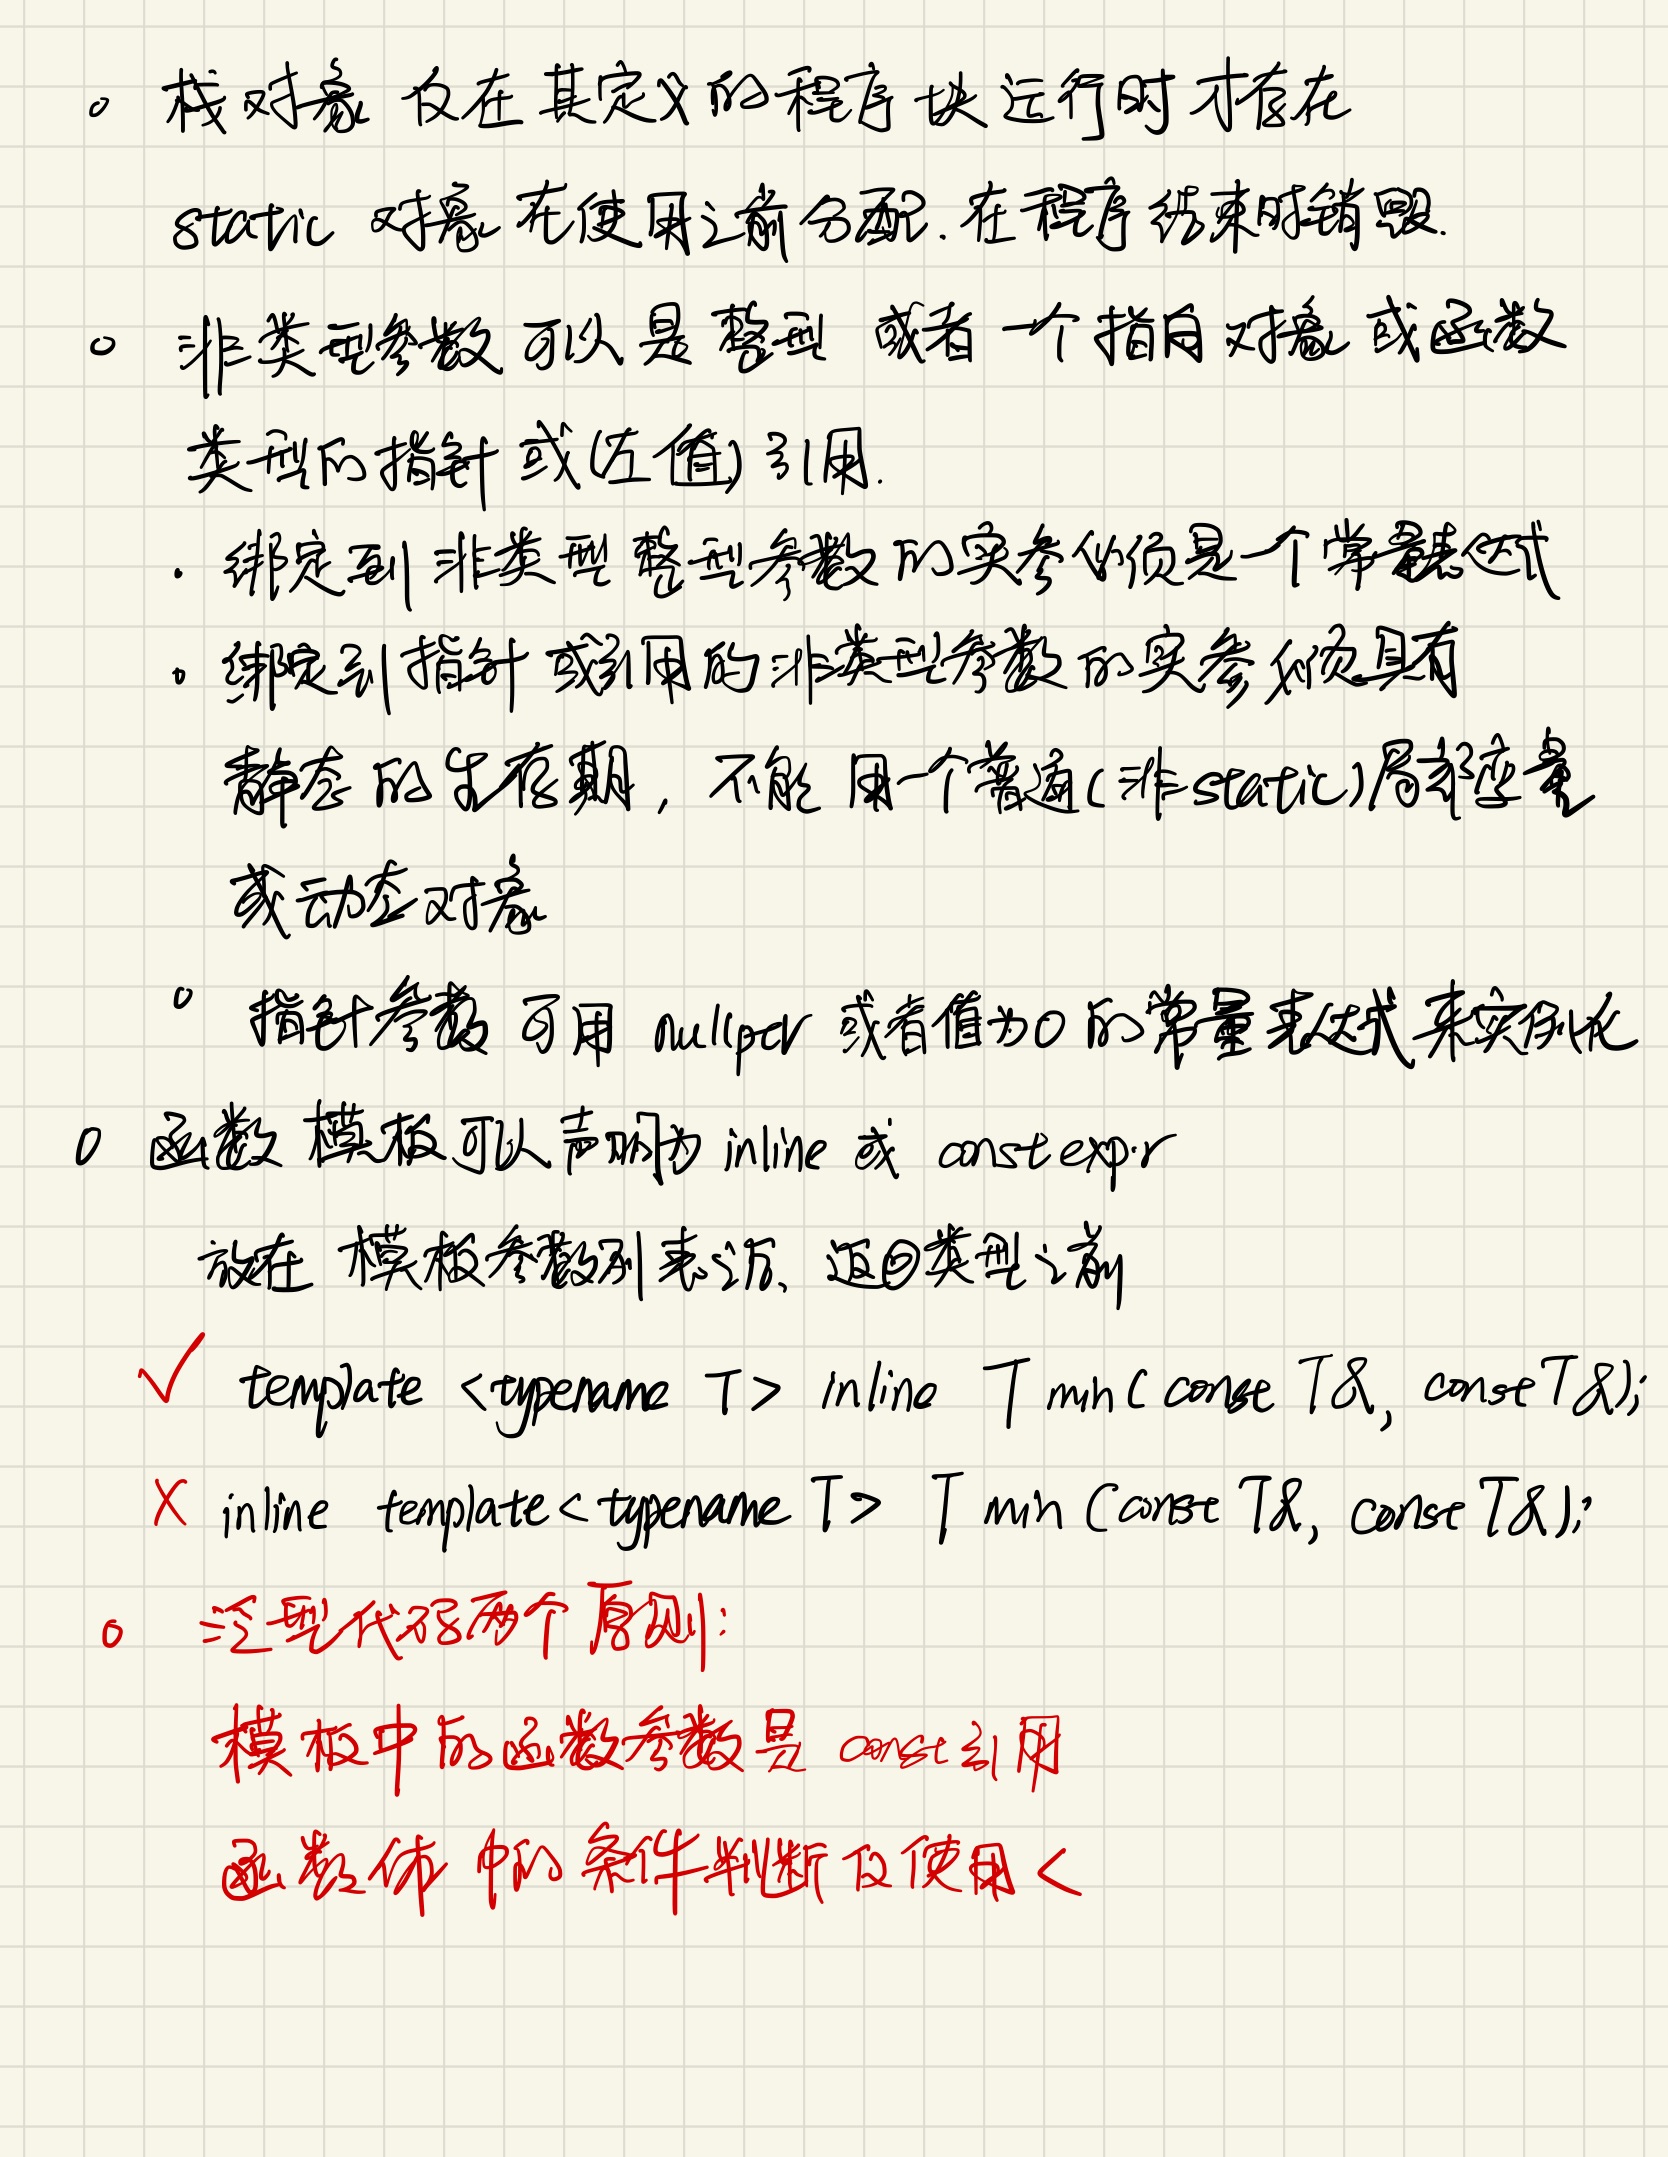 。栈对象 仅在其定义的程序块运行时才存在
static 对象在使用之前分配.在程序结束时销毁.
。非类型参数可以是整型 或者一个指向对象或函数
类型的指针或(左值)引用.
· 绑定到非类型整型参数的实参必须是一个常量表达式
。绑定到指针或引用的非类型参数的实参必须具有
静态的生存期, 不能用一个普通(非static)局部变量
或动态对象
。指针参数可用 nullptr 或者值为0的常量表达式来实例化
。函数模板可以声明为 inline 或 constexpr
放在 模板参数列表之后、返回类型之前
✓ template <typename T> inline T min(const T&, const T&);
X inline template<typename T> T min (const T&, const T&);
。泛型代码两个原则:
模板中的函数参数是 const引用
函数体中的条件判断仅使用<